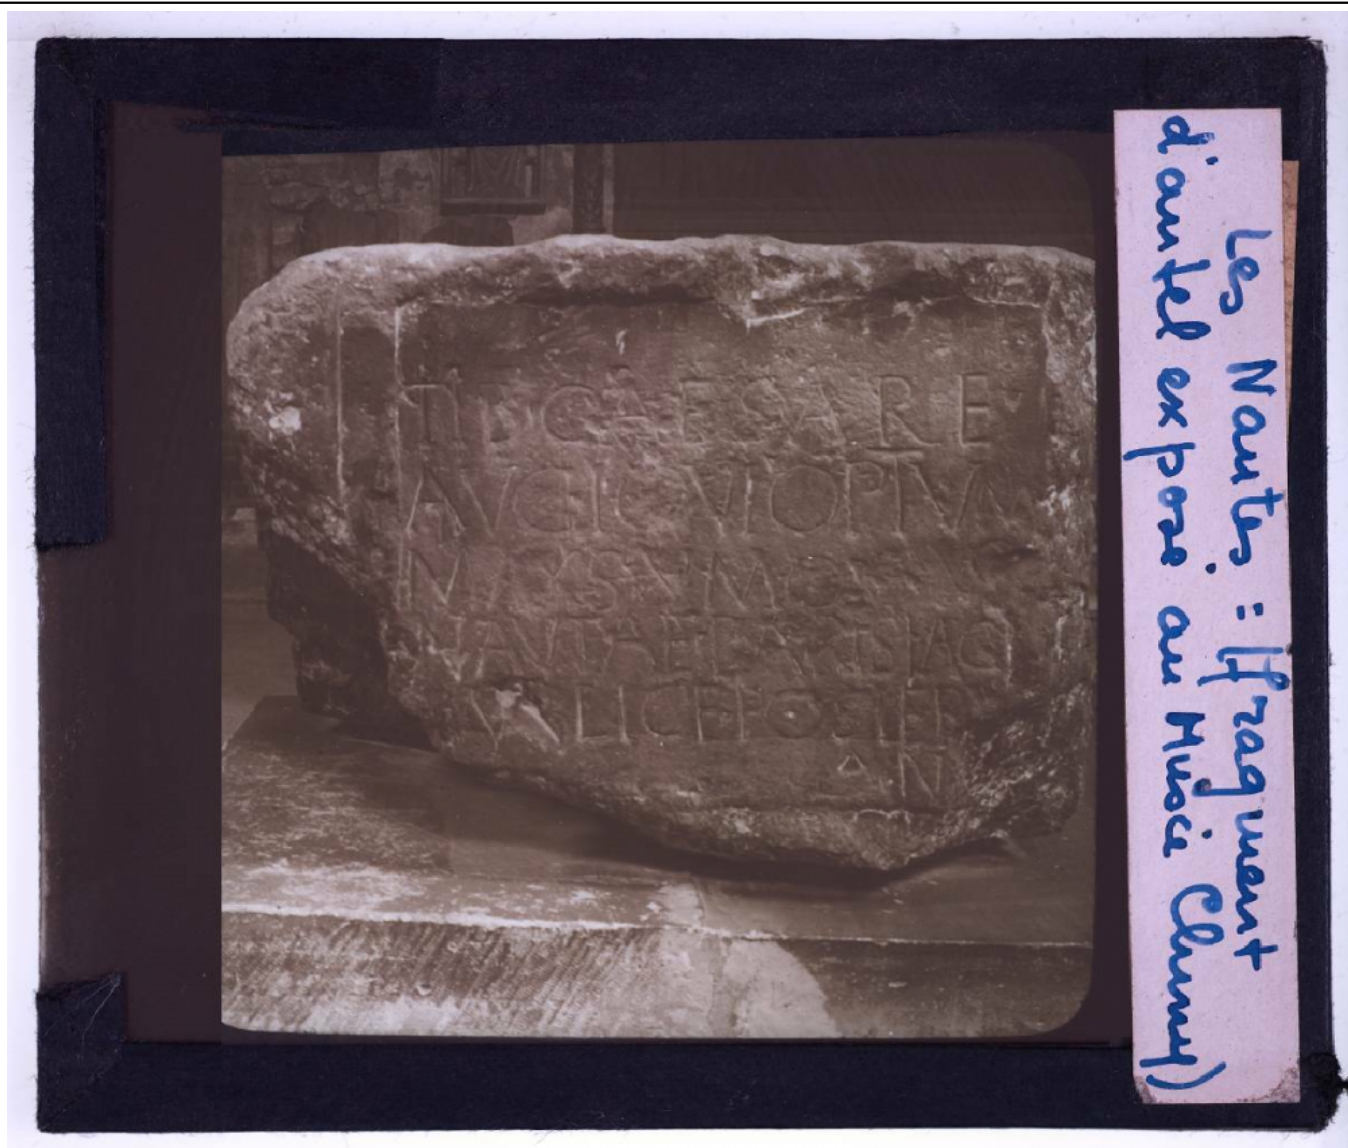 TIB CAESARE
AVG IOVI OPTVM
MAXSVMO
NAVTAE PARISIAC
PVBLICE POSIER
N
Les Nautes : (fragment
d'autel exposé au Musée Cluny)